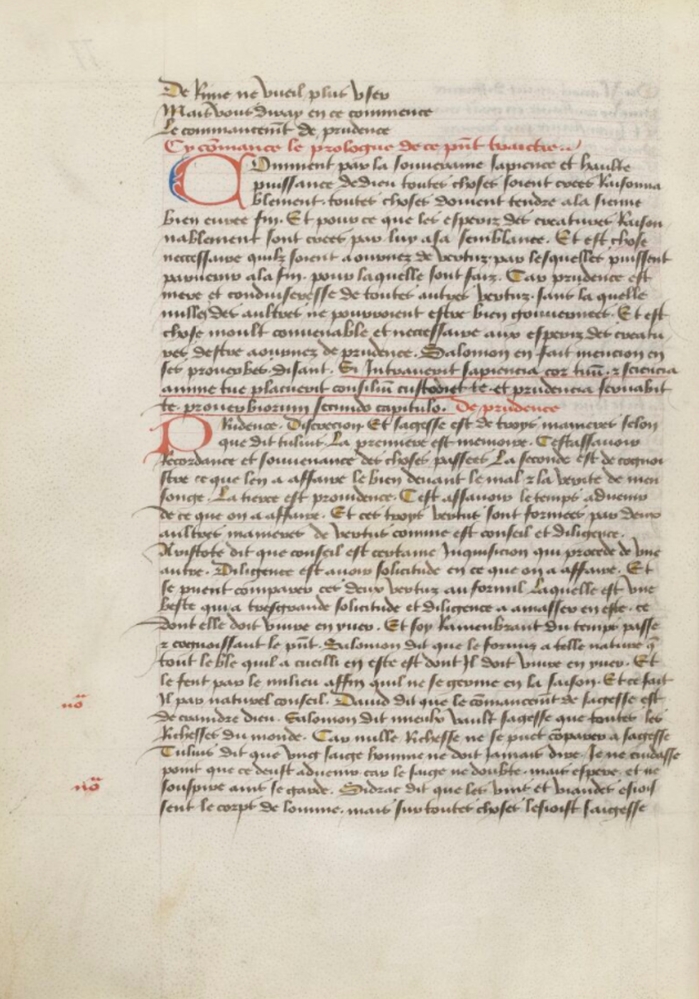 De Rime ne vueil plus vser
Mais vous diray en ce commence
Le commancem̄t de prudence
Cy cōmance le prologue de ce pn̄t traictre
Comment par la souueraine sapience et haulte
puissance de dieu toutes choses soient crees Raisonna
blement. toutes choses doiuent tendre a la sienne
bien euree fin. Et pour ce que les esperiz des creatures Raison
nablement sont crees par luy a sa semblance. Et est chose
neccessaire quilz soient aournez de vertuz par lesquelles puissent
paruenir a la fin. pour laquelle sont faiz. Car prudence est
mere et conduiseresse de toutes autres vertuz. sans la quelle
nulles des aultres ne pourroient estre bien gouuernees. Et est
chose moult conuenable et neccessaire aux esperiz des creatu
res destre aournez de prudence. Salomon en fait mencion en
ses prouerbes disant. Si Intrauerit sapiencia cor tuū. ⁊ sciencia
anime tue placuerit consiliū custodiet te. et prudencia seruabit
te. prouerbiorum secundo capitulo. De prudence
Prudence. Discrecion. Et sagesse est de troys manieres selon
que dit tulius. La premiere est memoire. Cestassauoir
Recordance et souuenance des choses passees. La seconde est de cognoi
stre ce que len a affaire le bien deuant le mal ⁊ la verite de men
songe. La tierce est prouidence. Cest assauoir le temps aduenir
de ce que on a affaire. Et ces troys vertus sont formees par deux
aultres manieres de vertus comme est conseil et diligence.
Aristote dit que conseil est certaine Inquisicion qui procede de vne
autre. Diligence est auoir solicitude en ce que on a affaire. Et
se puent comparer ces deux vertuz au formil. Laquelle est vne
beste qui a tresgrande solicitude et diligence a amasser en este. ce
dont elle doit viure en yuer. Et soy Ramenbrant du temps passe
⁊ cognoissant le pn̄t. Salomon dit que le formis a telle nature q̄
tout le ble quil a cueilli en este est dont Il doit viure en yuer. Et
le fent par le milieu affin quil ne se germe en la saison. Et ce fait
nō Il par naturel conseil. Dauid dit que le cōmancem̄t de sagesse est
de craindre dieu. Salomon dit mieulx vault sagesse que toutes les
Richesses du monde. Car nulle Richesse ne se puet cōparer a sagesse
Tulius dit que vng saige homme ne doit Jamais dire. Je ne cuidasse
point que ce deust aduenir. car le saige ne doubte. mais espere. et ne
nō souspire ains se garde. Sidrac dit que les vins et viandes esiois
sent le corps de lomme. mais sur toutes choses lesioist saigesse